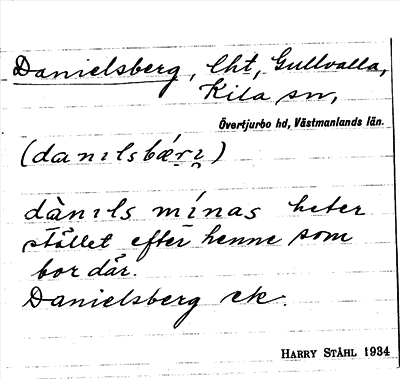 Danielsberg, lht, Gullvalla,
Kila sn,
Övertjurbo hd, Västmanlands län.
(danɪlsbǽrɪ̯)
dànɪls mínas heter
stället efter henne som
bor där.
Danielsberg ek.
HARRY STÅHL 1934